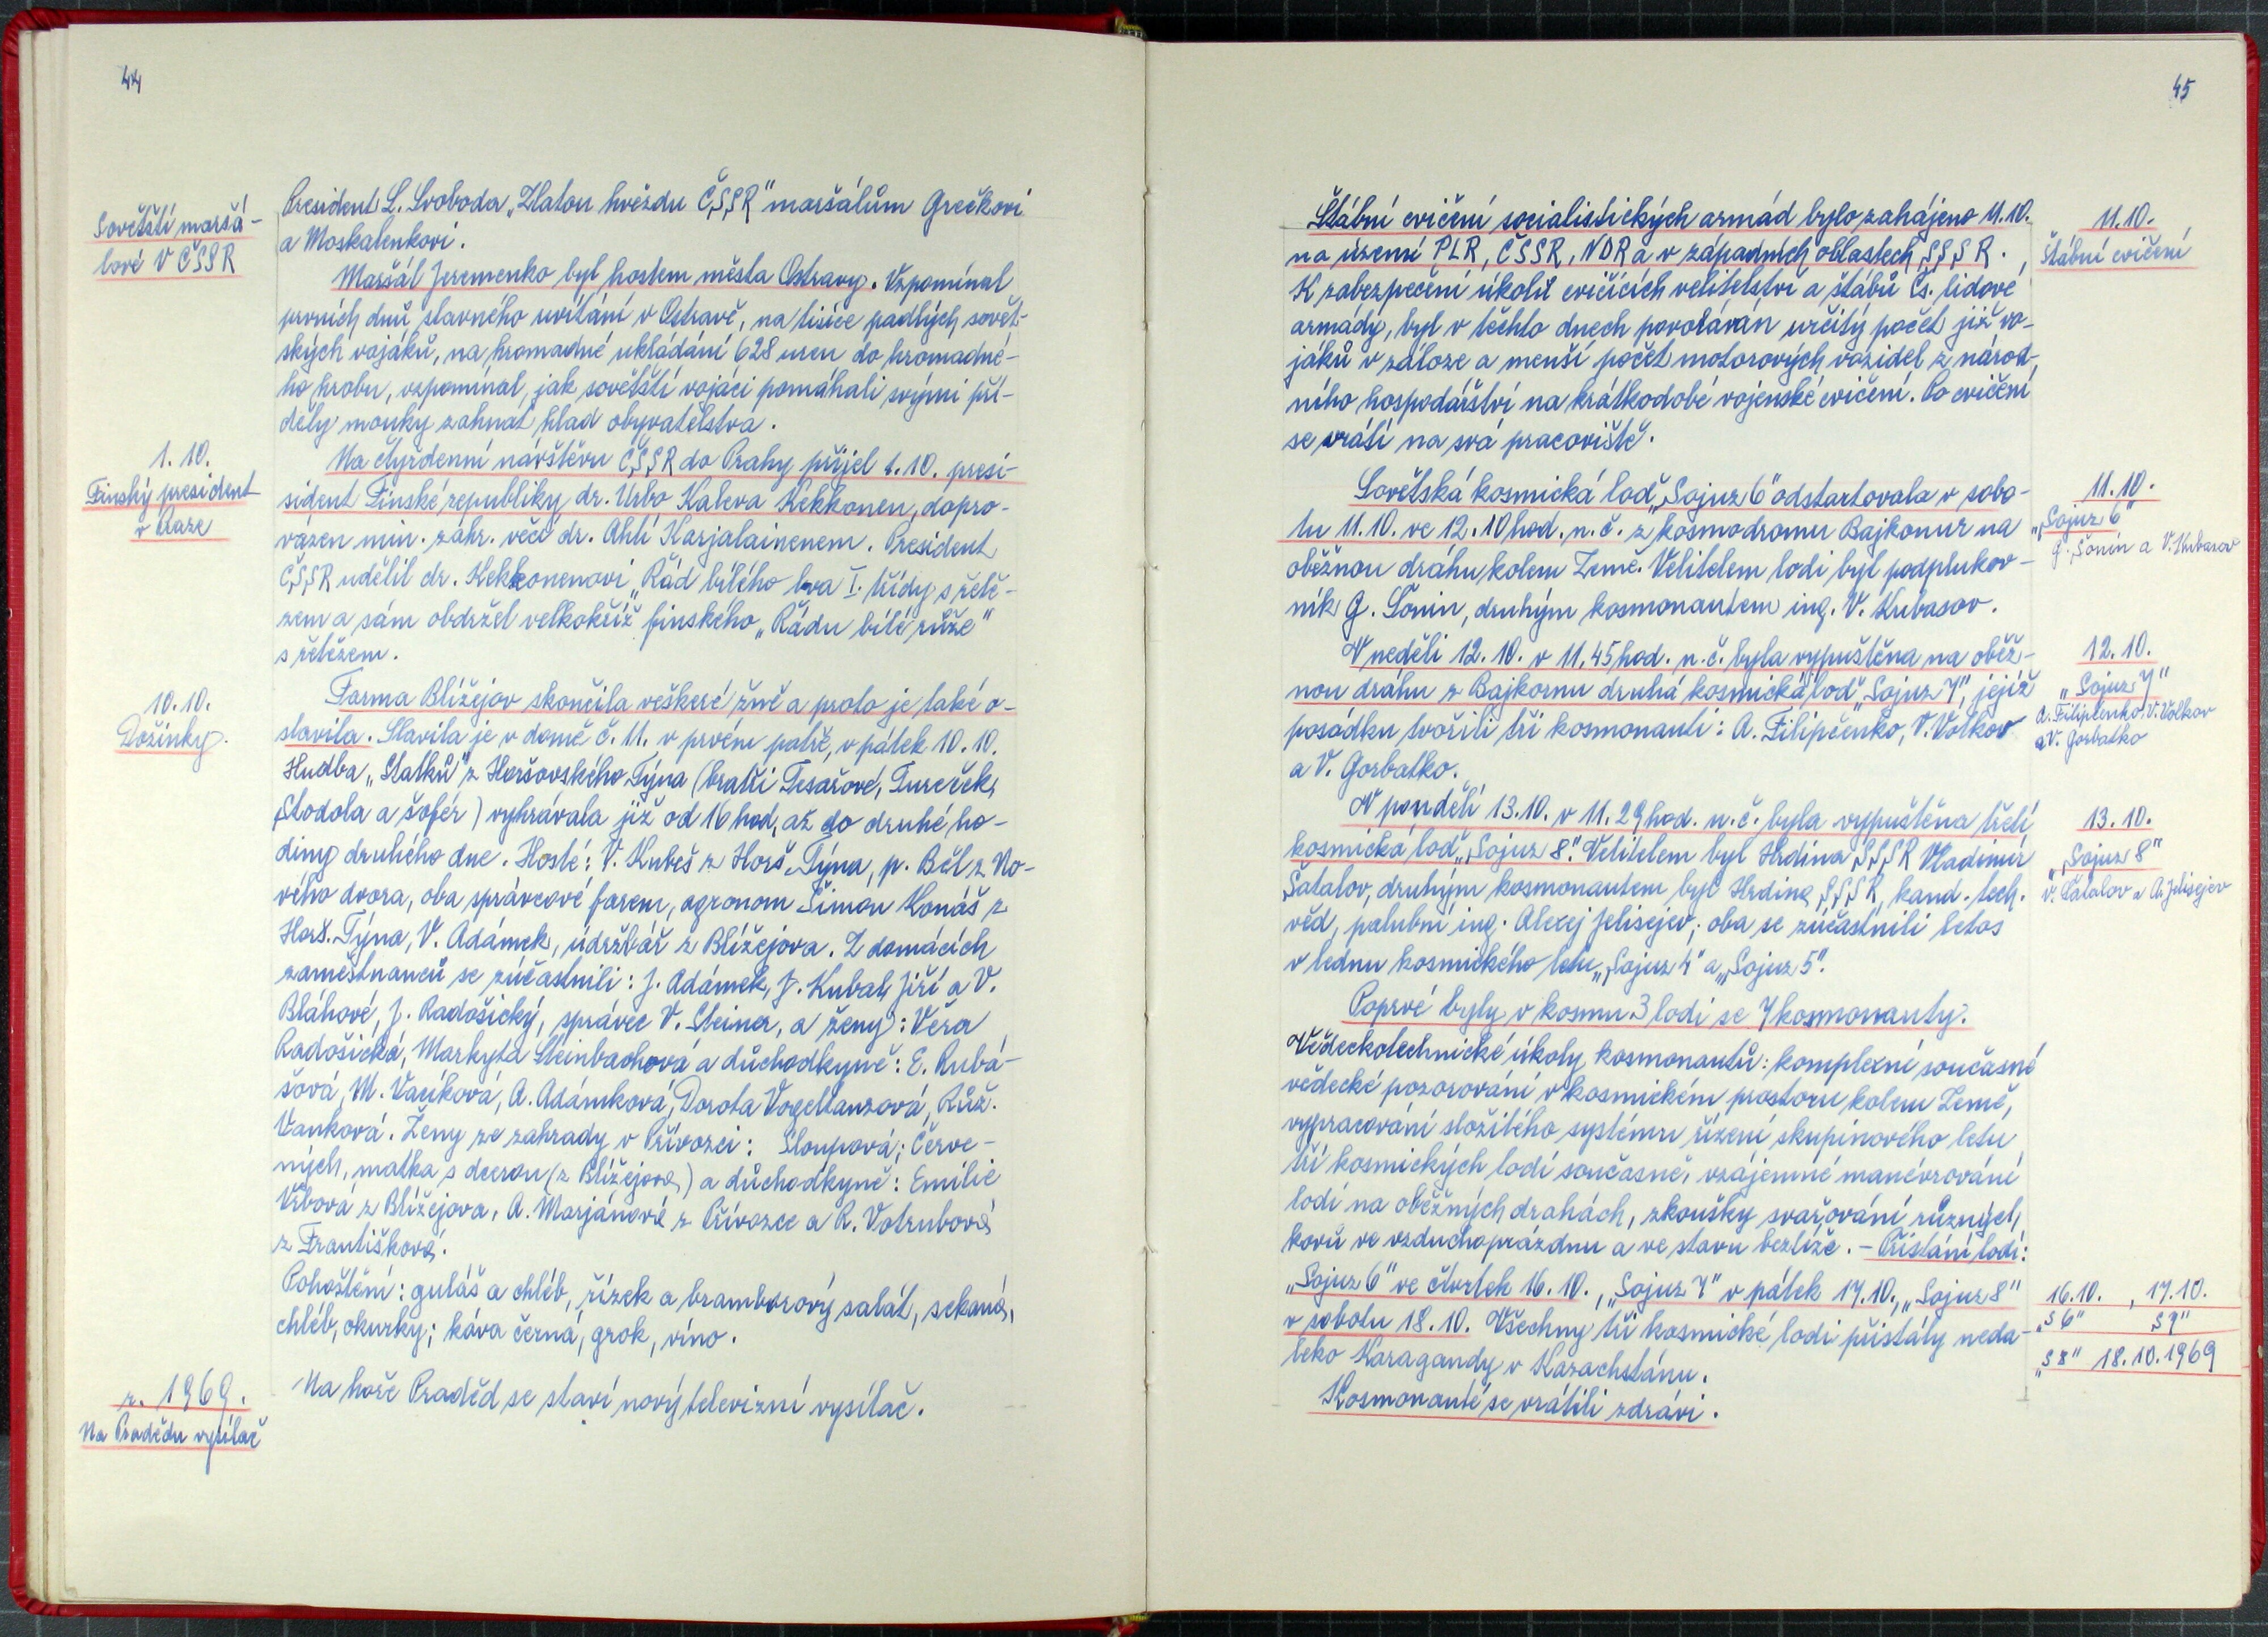 44
Sovětští maršá-
lové v ČSSR
President L. Svoboda „Zlatou hvězdu ČSSR" maršálům Grečkovi
a Moskalenkovi.
Maršál Jeremenko byl hostem města Ostravy. Vzpomínal
prvních dnů slavného uvítání v Ostravě, na tisíce padlých sovět-
ských vojáků, na hromadné ukládání 628 uren do hromadné-
ho hrobu, vzpomínal, jak sovětští vojáci pomáhali svými pří-
děly mouky zahnat hlad obyvatelstva.
1. 10.
Finský president
v Praze
Na čtyřdenní návštěvu ČSSR do Prahy přijel 1.10. presi-
sident Finské republiky dr. Urho Kaleva Kekkonen, dopro-
vázen min. zahr. věcí dr. Ahti Karjalainenem. President
ČSSR udělil dr. Kekkonenovi „Řád bílého lva I. třídy s řetě-
zem a sám obdržel velkokříž finského „Řádu bílé růže"
s řetězem.
10.10.
Dožínky.
Farma Blížejov skončila veškeré žně a proto je také o-
slavila. Slavila je v domě č. 11. v prvém patře, v pátek 10.10.
Hudba „Statků" z Horšovského Týna (bratři Tesařové, Tureček,
Stodola a šofér) vyhrávala již od 16 hod. až do druhé ho-
diny druhého dne. Hosté: V. Kubeš z Horš. Týna, p. Běl z No-
vého dvora, oba správcové farem, agronom Šimon Konáš z
Horš. Týna, V. Adámek, údržbář z Blížejova. Z domácích
zaměstnanců se zúčastnili: J. Adámek, J. Kubal, Jiří a V.
Bláhové, J. Radošický, správce V. Steiner, a ženy: Věra
Radošická, Markyta Steinbachová a důchodkyně: E. Rubá-
šová, M. Vacíková, A. Adámková, Dorota Vogeltanzová, Růž.
Vanková. Ženy ze zahrady v Přívozci: Sloupová; Červe-
ných, matka s dcerou (z Blížejova) a důchodkyně: Emilie
Vrbová z Blížejova, A. Marjánová z Přívozce a R. Votrubová
z Františkova.
Pohoštění: guláš a chléb, řízek a bramborový salát, sekaná,
chléb, okurky; káva černá, grok, víno.
r. 1969.
Na Pradědu vysílač
Na hoře Praděd se staví nový televizní vysílač.
45
Štábní cvičení socialistických armád bylo zahájeno 11.10.
na území PLR, ČSSR, NDR a v západních oblastech SSSR.
K zabezpečení úkolů cvičících velitelství a štábů Čs. lidové
armády, byl v těchto dnech povoláván určitý počet již vo-
jáků v záloze a menší počet motorových vozidel z národ-
ního hospodářství na krátkodobé vojenské cvičení. Po cvičení
se vrátí na svá pracoviště.
11.10.
Štábní cvičení
Sovětská kosmická loď „Sojuz 6" odstartovala v sobo-
tu 11.10. ve 12.10 hod. n. č. z kosmodromu Bajkonur na
oběžnou dráhu kolem Země. Velitelem lodi byl podplukov-
ník G. Šonin, druhým kosmonautem ing. V. Kubasov.
11.10.
„Sojuz 6"
G. Šonin a V. Kubasov
V neděli 12.10. v 11,45 hod. n. č. byla vypuštěna na oběž-
nou dráhu z Bajkornu druhá kosmická loď „Sojuz 7", jejíž
posádku tvořili tři kosmonauti: A. Filipčenko, V. Volkov
a V. Gorbatko.
12.10.
„Sojuz 7"
A. Filipčenko, V. Volkov
a V. Gorbatko
V pondělí 13.10. v 11.29 hod. n. č. byla vypuštěna třetí
kosmická loď „Sojuz 8". Velitelem byl Hrdina SSSR Vladimír
Šatalov, druhým kosmonautem byl Hrdina SSSR, kand. tech.
věd, palubní ing. Alexej Jelisejev; oba se zúčastnili letos
v lednu kosmického letu „Sojuz 4" a „Sojuz 5".
13.10.
„Sojuz 8"
V. Šatalov a A. Jelisejev
Poprvé byly v kosmu 3 lodi se 7 kosmonauty.
Vědeckotechnické úkoly kosmonautů: komplexní současné
vědecké pozorování v kosmickém prostoru kolem Země,
vypracování složitého systému řízení skupinového letu
tří kosmických lodí současně, vzájemné manévrování
lodí na oběžných drahách, zkoušky svařování různých
kovů ve vzduchoprázdnu a ve stavu beztíže. – Přistání lodí:
„Sojuz 6" ve čtvrtek 16.10., „Sojuz 7" v pátek 17.10., „Sojuz 8"
v sobotu 18.10. Všechny tři kosmické lodi přistály neda-
leko Karagandy v Kazachstánu.
Kosmonauté se vrátili zdrávi.
16.10. , 17.10.
„S 6" S 7"
„S 8" 18.10.1969